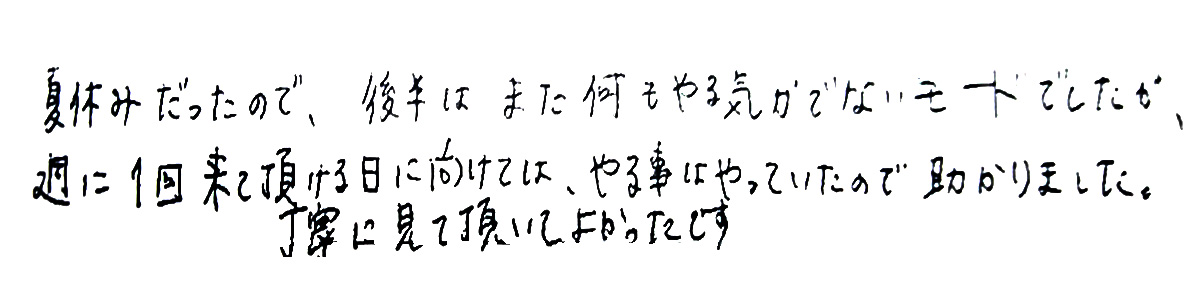 夏休みだったので、後半はまた何もやる気がでないモードでしたが、
週に1回来て頂ける日に向けては、やる事はやっていたので助かりました。
丁寧に見て頂いてよかったです